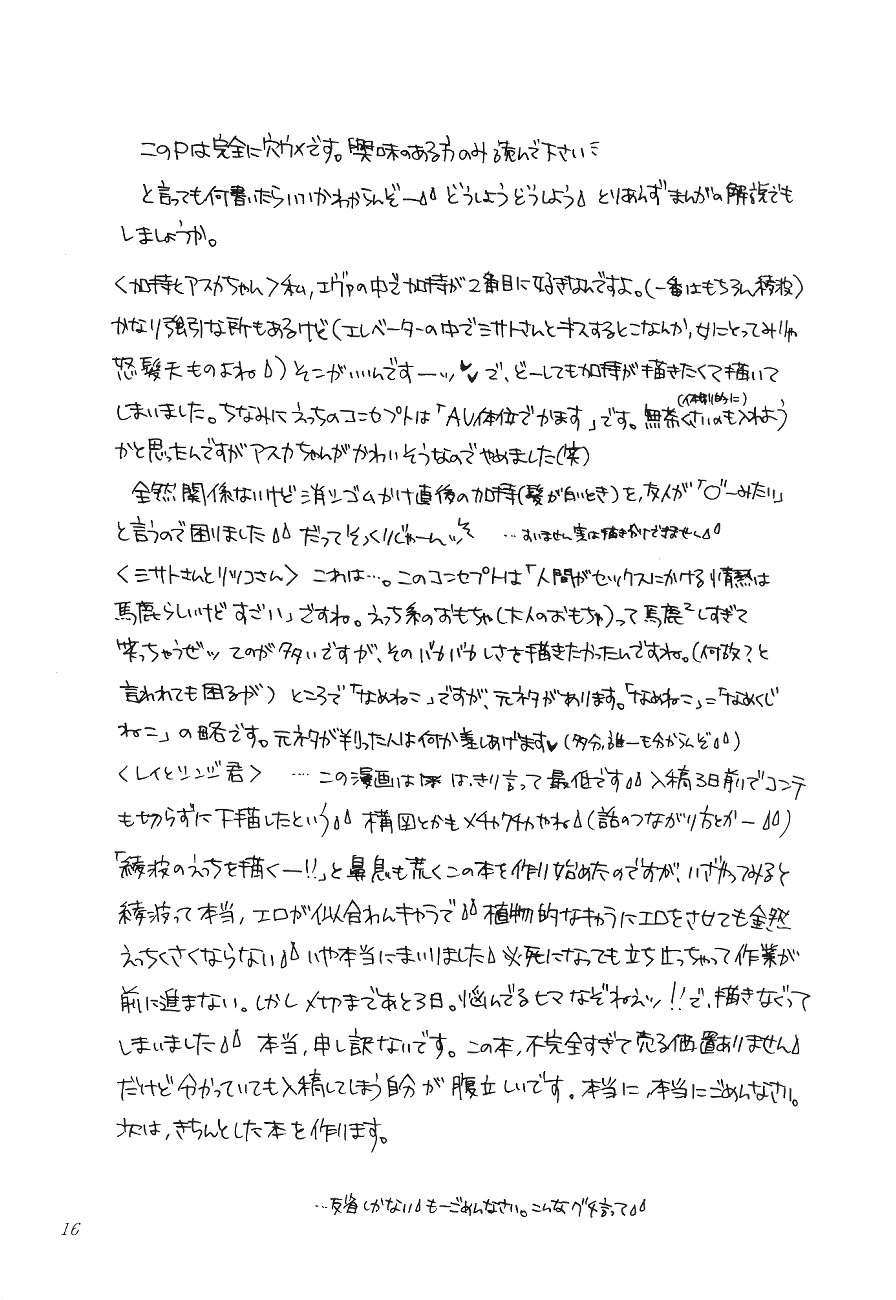 このPは完全に穴ウメです。興味のある方のみ読んで下さい
と言っても何書いたらいいかわからんぞー どうしようどうしよう とりあえずまんがの解説でも
しましょうか。
〈加持とアスカちゃん〉私,エヴァの中で加持が2番目に好きなんですよ。(一番はもちろん綾波)
かなり強引な所もあるけど(エレベーターの中でミサトさんとキスするとこなんか,女にとってみりゃ
怒髪天ものよね)そこがいいんですーッ♥♥ で、どーしても加持が描きたくて描いて
しまいました。ちなみにえっちのコンセプトは「AV体位でかます」です。無茶くさいのも入れよう
(体制的に)
かと思ったんですがアスカちゃんがかわいそうなのでやめました(笑)
全然関係ないけど消シゴムかけ直後の加持(髪が白いとき)を,友人が「 ーみたい」
と言うので困りました だってそっくりじゃーんッ …すいません実は描き分けできません
〈ミサトさんとリツコさん〉 これは…。このコンセプトは「人間がセックスにかける情熱は
馬鹿らしいけどすごい」ですね。えっち系のおもちゃ(大人のおもちゃ)って馬鹿²しすぎて
笑っちゃうぜッ てのが多いですが、そのバカバカしさを描きたかったんですね。(何故?と
言われても困るが) ところで「なめねこ」ですが、元ネタがあります。「なめねこ」=「なめくじ
ねこ」の略です。元ネタが判った人は何か差しあげます♥(多分,誰一も分からんぞ)
〈レイとシンジ君〉 …この漫画は はっきり言って最低です 入稿3日前でコンテ
も切らずに下描したという 構図とかもメチャクチャやね(話のつながり方とかー)
「綾波のえっちを描くー!!」と鼻息も荒くこの本を作り始めたのですが、いざやってみると
綾波って本当,エロが似合わんキャラで 植物的なキャラにエロをさせても全然
えっちくさくならない いや本当にまいりました 必死になっても立ち止っちゃって作業が
前に進まない。しかし〆切まであと3日。悩んでるヒマなぞねえッ!!で、描きなぐって
しまいました 本当,申し訳ないです。この本,不完全すぎて売る価置ありません
だけど分かっていても入稿してしまう自分が腹立しいです。本当に,本当にごめんなさい。
次は,きちんとした本を作ります。
…反省しかない もーごめんなさい。こんなグチ言って
16